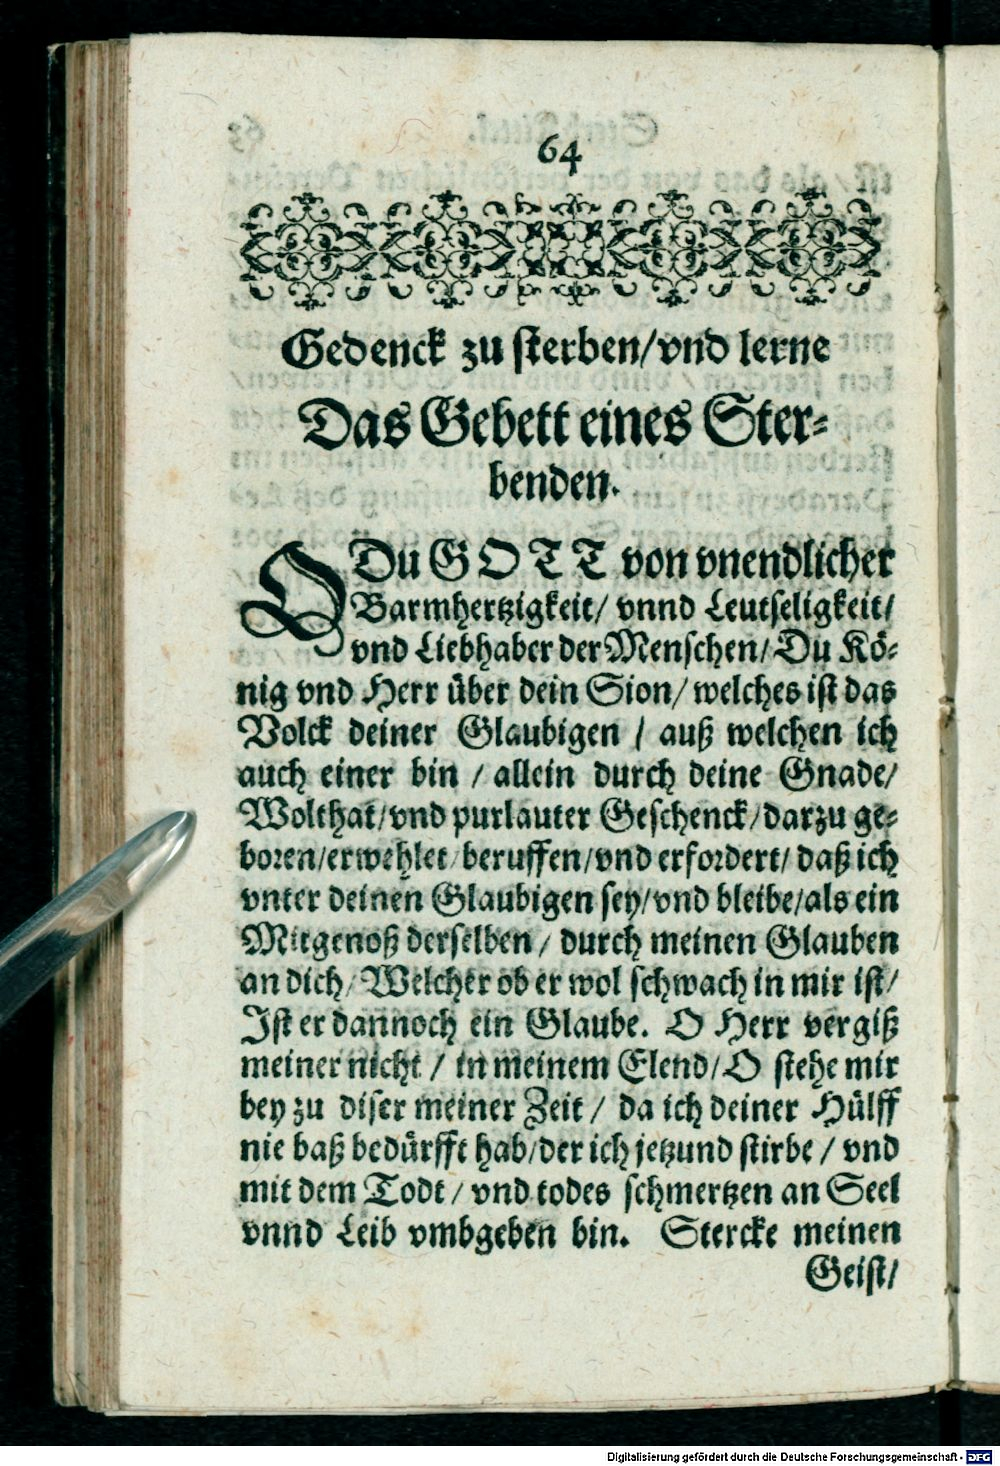 64
Gedenck zu sterben/vnd lerne
Das Gebett eines Ster-
benden.
O Du GOTT von vnendlicher
Barmhertzigkeit/ vnnd Leutseligkeit/
vnd Liebhaber der Menschen/ Du Kö-
nig vnd Herr über dein Sion/ welches ist das
Volck deiner Glaubigen / auß welchen ich
auch einer bin / allein durch deine Gnade/
Wolthat/ vnd purlauter Geschenck/ darzu ge-
boren/ erwehlet/ beruffen/ vnd erfordert/ daß ich
vnter deinen Glaubigen sey/ vnd bleibe/ als ein
Mitgenoß derselben / durch meinen Glauben
an dich/ Welcher ob er wol schwach in mir ist/
Ist er dannoch ein Glaube. O Herr vergiß
meiner nicht / in meinem Elend/ O stehe mir
bey zu diser meiner Zeit / da ich deiner Hülff
nie baß bedürfft hab/ der ich jetzund stirbe / vnd
mit dem Todt / vnd todes schmertzen an Seel
vnnd Leib vmbgeben bin. Stercke meinen
Geist/
Digitalisierung gefördert durch die Deutsche Forschungsgemeinschaft - DFG